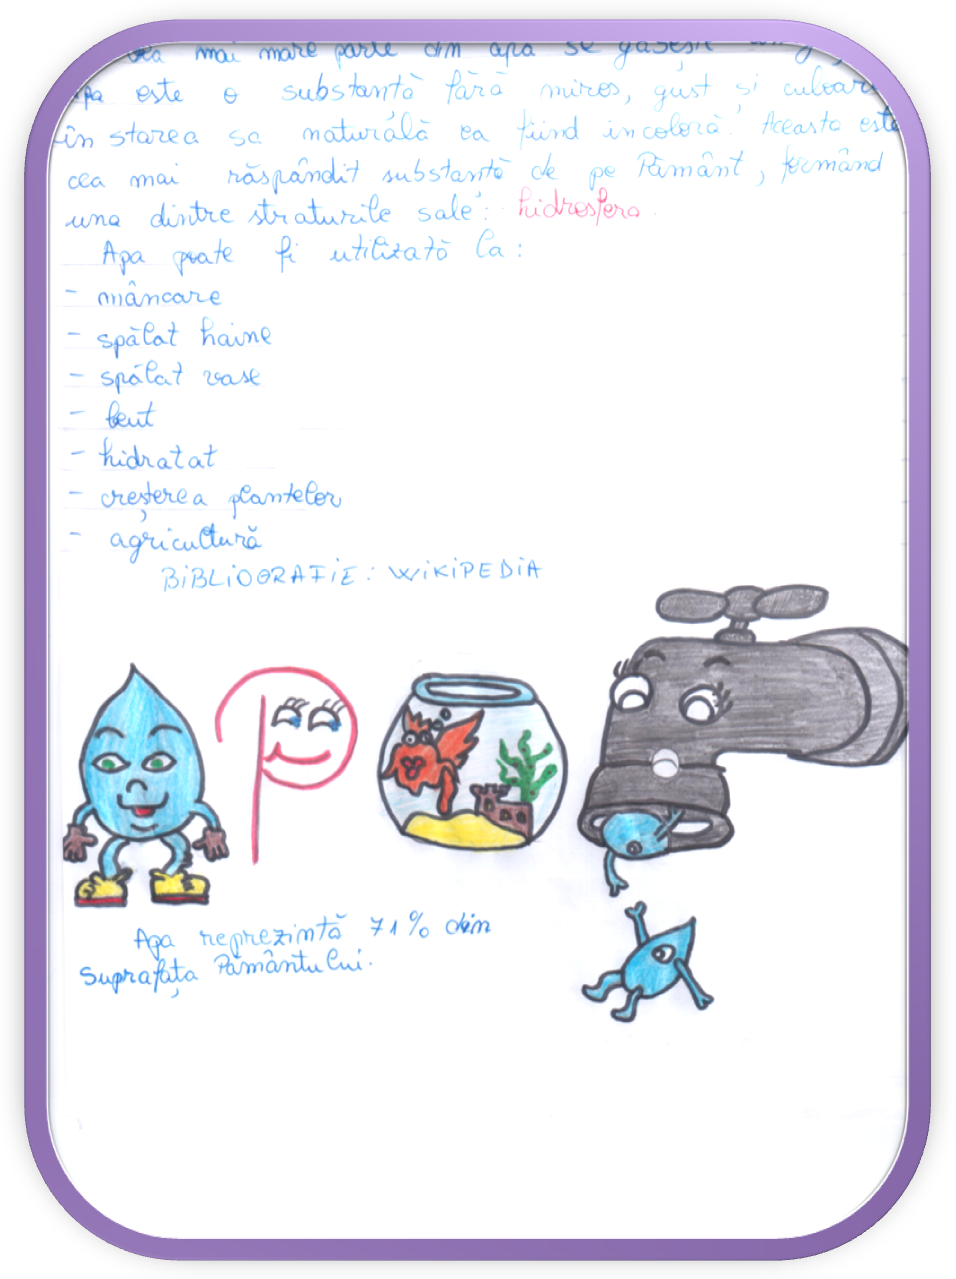 mai mare parte din apa se găsește
apa este o substanță fără miros, gust și culoare
în starea sa naturală ea fiind incoloră. Aceasta este
cea mai răspândit substanță de pe Pământ, formând
una dintre straturile sale: hidrosfera.
Apa poate fi utilizată la:
- mâncare
- spălat haine
- spălat vase
- beut
- hidratat
- creșterea plantelor
- agricultură
BIBLIOGRAFIE: WIKIPEDIA
P
Apa reprezintă 71% din
Suprafața Pământului.